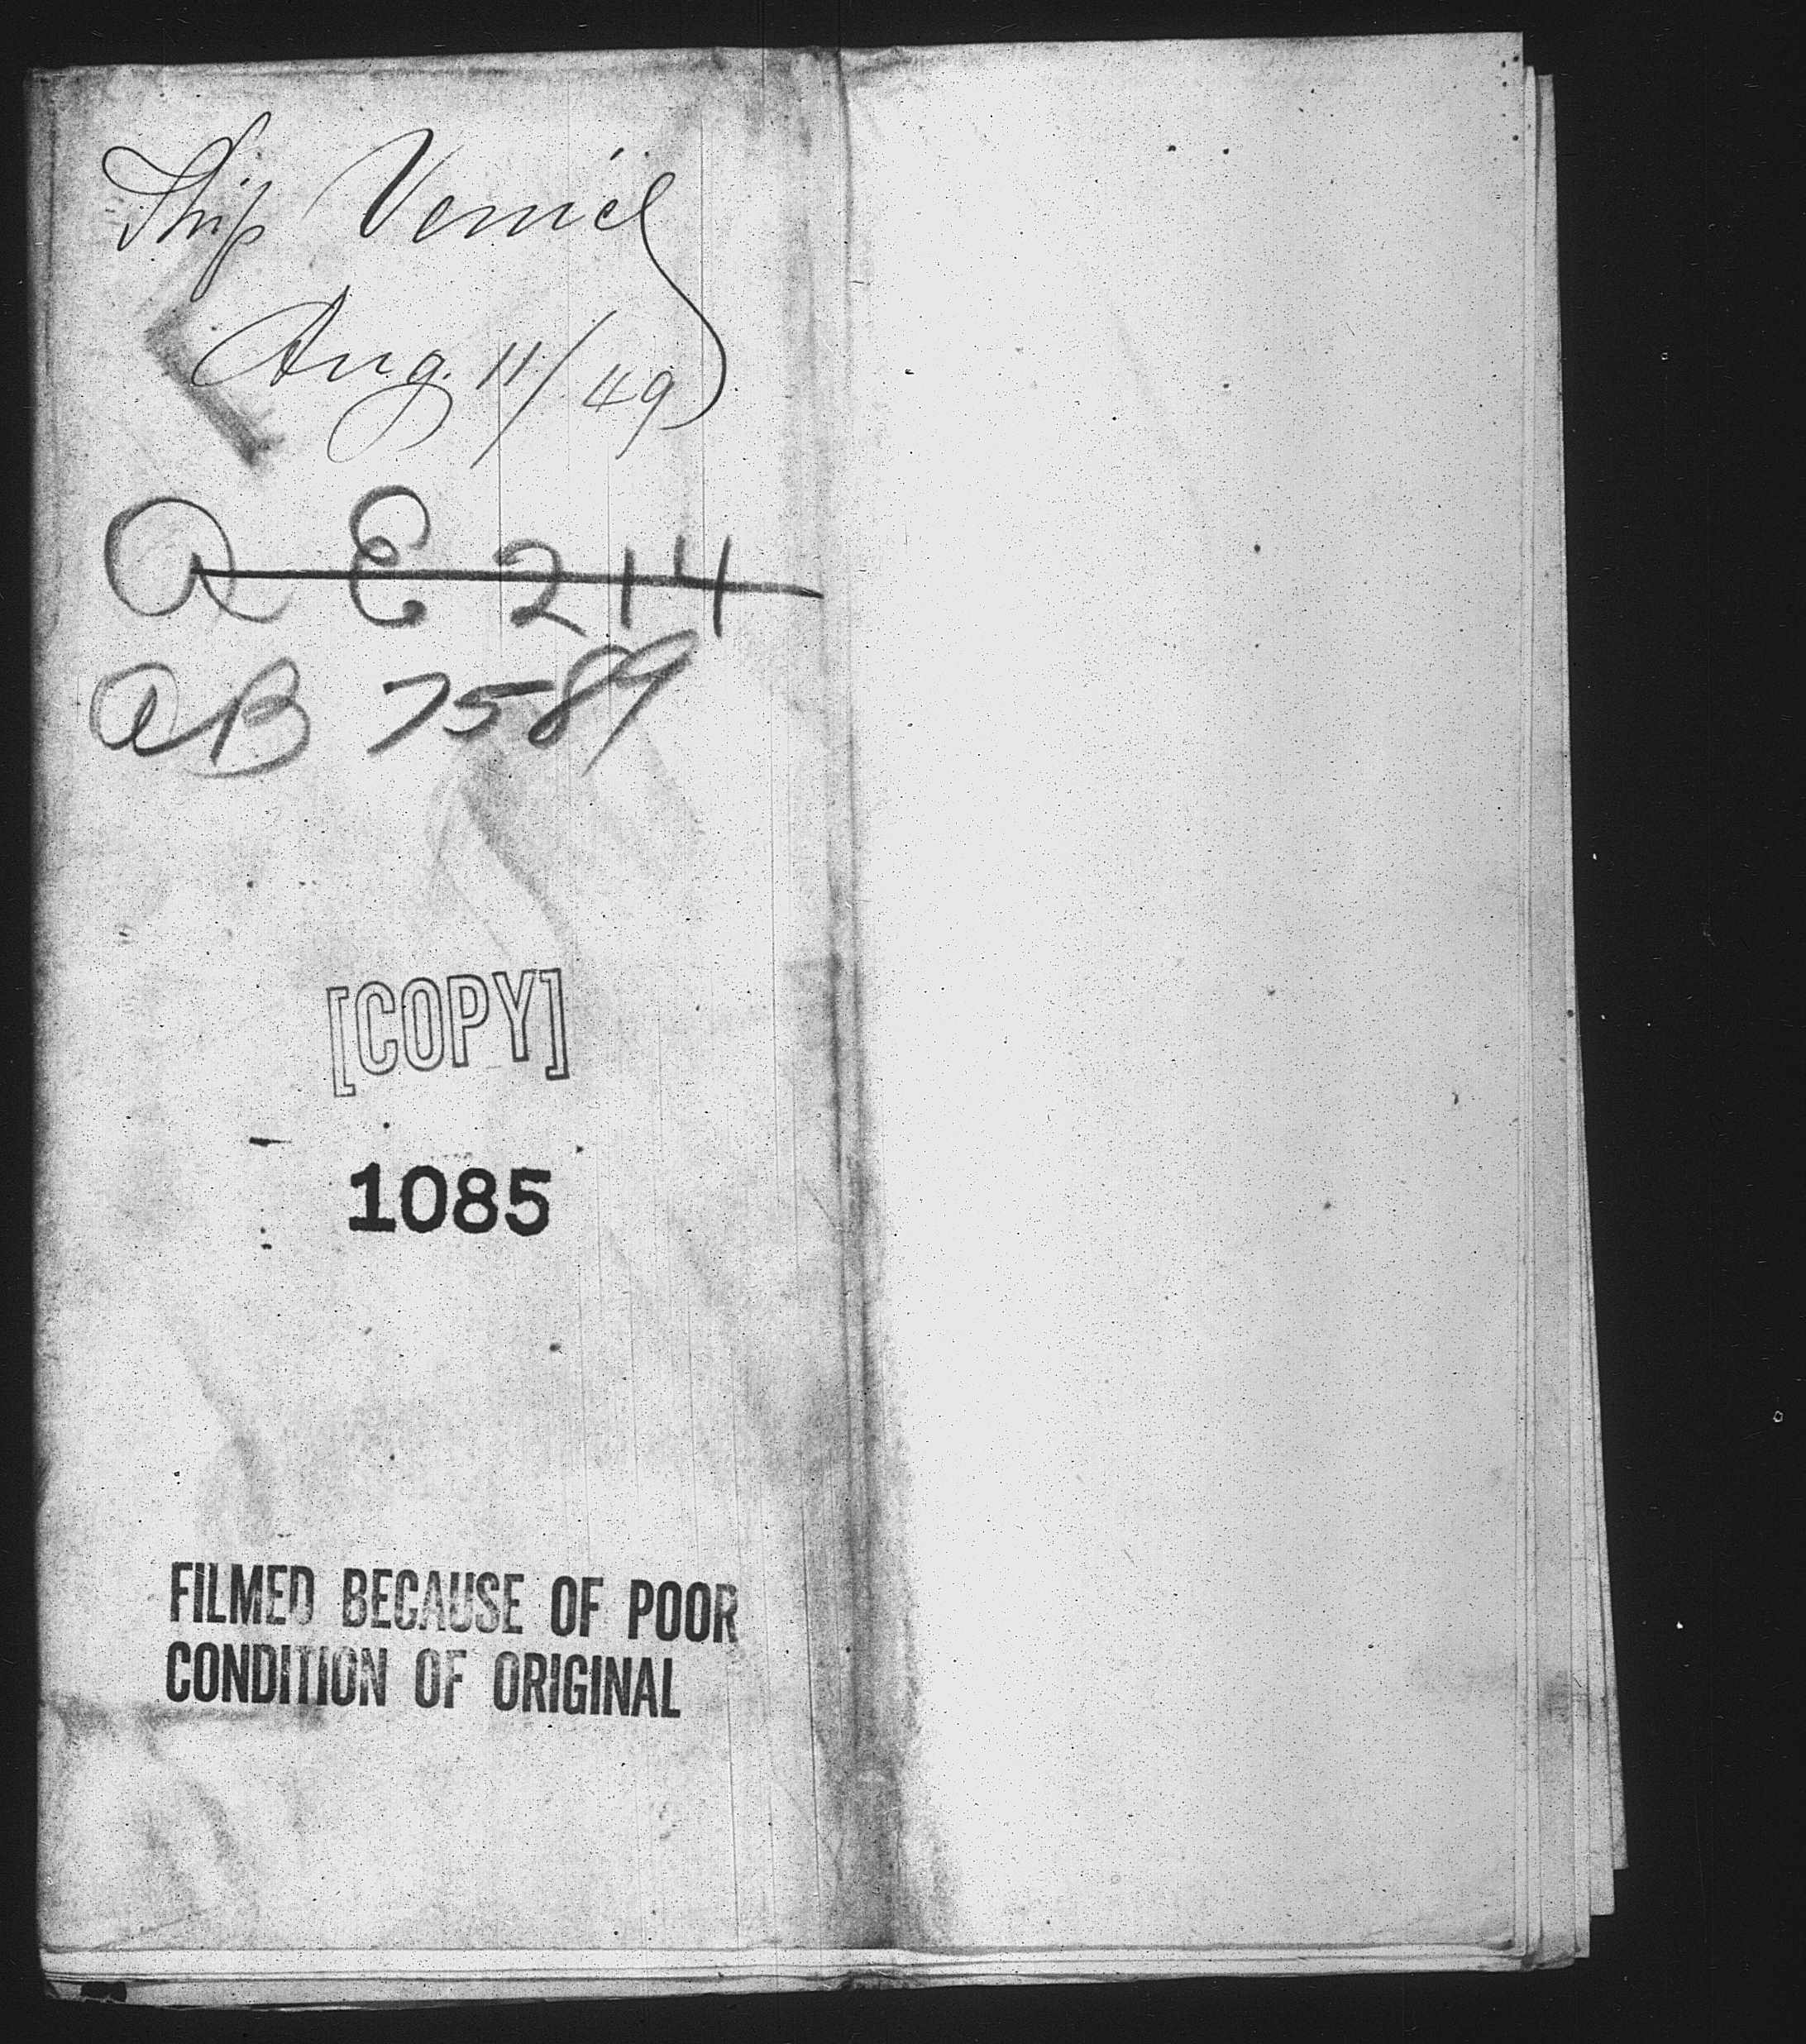 Ship
Aug. 11/49
[COPY]
1085
AB 7589
FILMED BECAUSE OF POOR
CONDITION OF ORIGINAL